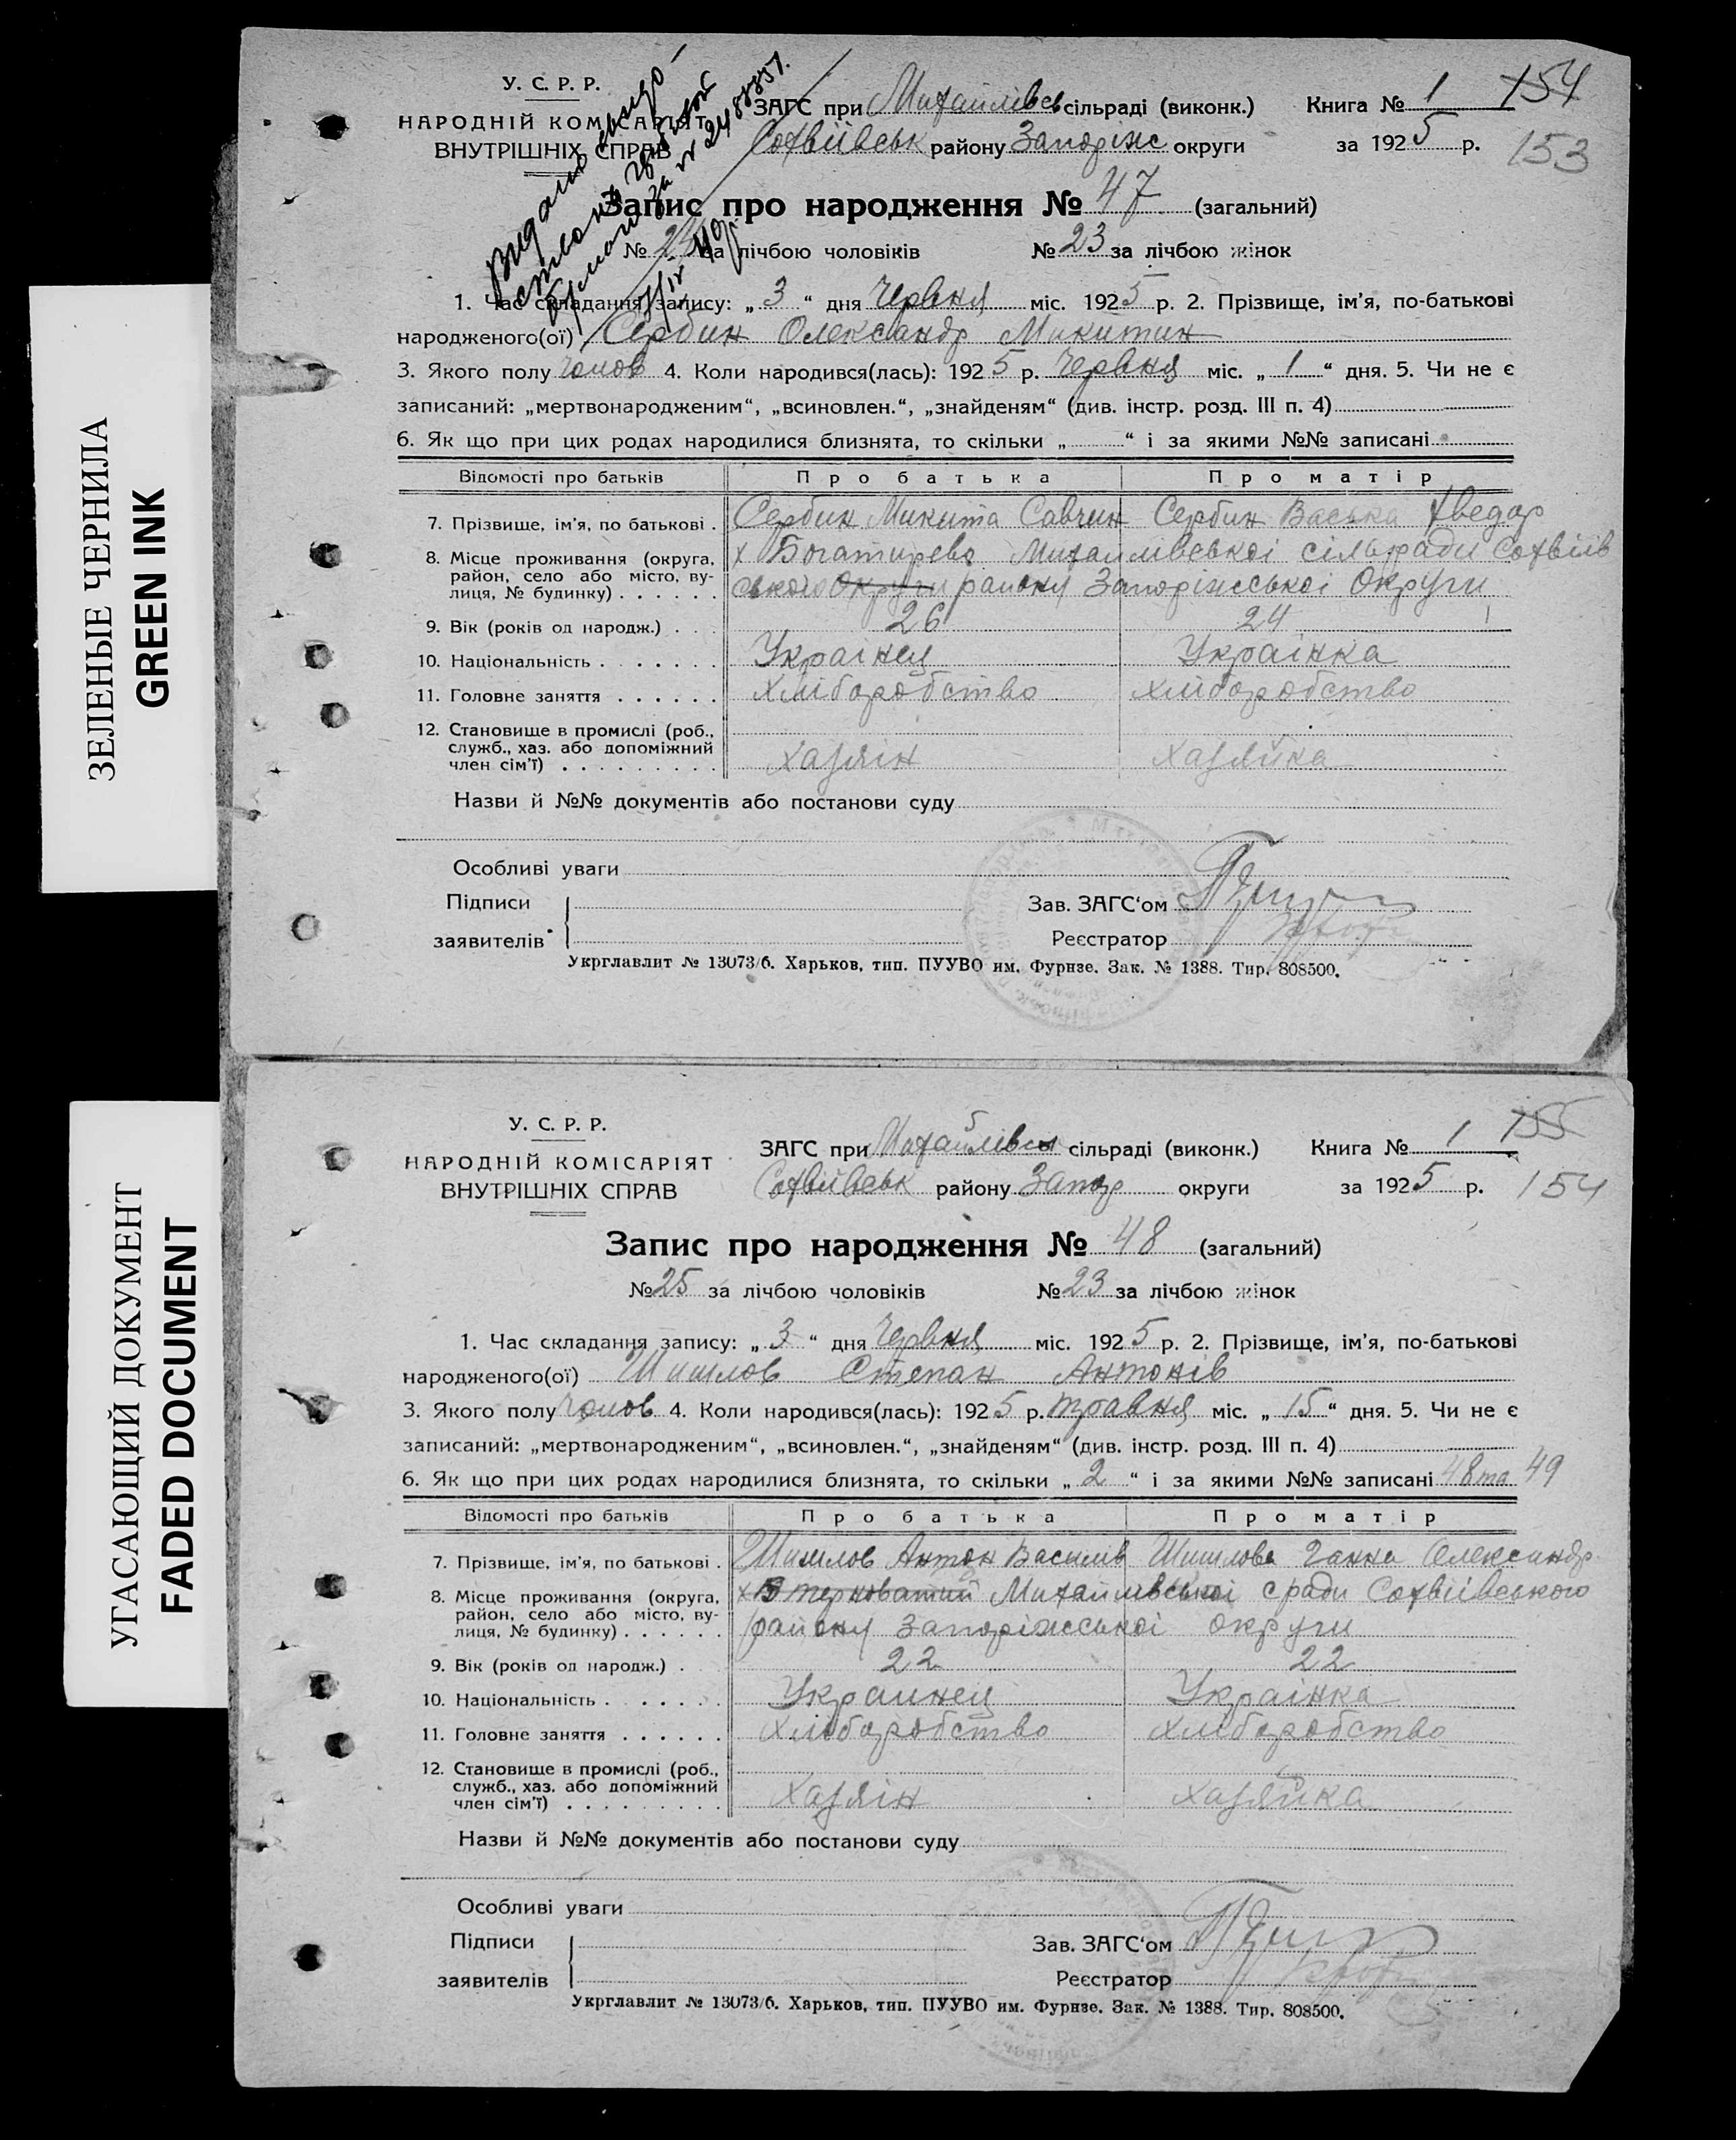 ЗЕЛЕНЫЕ ЧЕРНИЛА
GREEN INK
УГАСАЮЩИЙ ДОКУМЕНТ
FADED DOCUMENT
У. С. Р. Р.
НАРОДНІЙ КОМІСАРІЯТ
ВНУТРІШНІХ СПРАВ
ЗАГС при Михайлівсь сільраді (виконк.) Книга № 1 154
Софіївськ району Запоріжс округи за 1925 р. 153
Запис про народження № 47 (загальний)
№ 24 за лічбою чоловіків № 23 за лічбою жінок
1. Час складання запису: „ 3 “ дня Червня міс. 1925 р. 2. Прізвище, ім’я, по-батькові
народженого(ої) Сербин Олександр Микитин
3. Якого полу чолов 4. Коли народився(лась): 1925 р. Червня міс. „ 1 “ дня. 5. Чи не є
записаний: „мертвонародженим“, „всиновлен.“, „знайденям“ (див. інстр. розд. III п. 4)
6. Як що при цих родах народилися близнята, то скільки „ “ і за якими №№ записані
Відомості про батьків Про батька Про матір
7. Прізвище, ім’я, по батькові . Сербин Микита Савчин Сербин Васька Хведор
8. Місце проживання (округа, х Богатирево Михайлівської сільради Софіїв
район, село або місто, ву-
лиця, № будинку) . . . . . . ського Округи району Запоріжської Округи
9. Вік (років од народж.) . . . 26 24
10. Національність . . . . . . . Українец Українка
11. Головне заняття . . . . . . Хліборобство Хліборобство
12. Становище в промислі (роб.,
служб., хаз. або допоміжний
член сім’ї) . . . . . . . . . Хазяїн Хазяйка
Назви й №№ документів або постанови суду
Особливі уваги
Підписи Зав. ЗАГС‘ом
заявителів Реєстратор
Укрглавлит № 13073/6. Харьков, тип. ПУУВО им. Фурнзе. Зак. № 1388. Тир. 808500.
У. С. Р. Р.
НАРОДНІЙ КОМІСАРІЯТ
ВНУТРІШНІХ СПРАВ
ЗАГС при Михайлівсь сільраді (виконк.) Книга № 1 155
Софіївськ району Запор округи за 1925 р. 154
Запис про народження № 48 (загальний)
№ 25 за лічбою чоловіків № 23 за лічбою жінок
1. Час складання запису: „ 3 “ дня Червня міс. 1925 р. 2. Прізвище, ім’я, по-батькові
народженого(ої) Шишлов Степан Антонів
3. Якого полу чолов 4. Коли народився(лась): 1925 р. травня міс. „ 15 “ дня. 5. Чи не є
записаний: „мертвонародженим“, „всиновлен.“, „знайденям“ (див. інстр. розд. III п. 4)
6. Як що при цих родах народилися близнята, то скільки „ 2 “ і за якими №№ записані 48 та 49
Відомості про батьків Про батька Про матір
7. Прізвище, ім’я, по батькові . Шишлов Антон Василів Шишлова Ганна Олександр
8. Місце проживання (округа, х Терноватий Михайлівської с ради Софіївського
район, село або місто, ву-
лиця, № будинку) . . . . . . району Запоріжської округи
9. Вік (років од народж.) . 22 22
10. Національність . . . . . . . Украинец Українка
11. Головне заняття . . . . . . Хліборобство Хліборобство
12. Становище в промислі (роб.,
служб., хаз. або допоміжний
член сім’ї) . . . . . . . . . Хазяїн Хазяйка
Назви й №№ документів або постанови суду
Особливі уваги
Підписи Зав. ЗАГС‘ом
заявителів Реєстратор
Укрглавлит № 13073/6. Харьков, тип. ПУУВО им. Фурнзе. Зак. № 1388. Тир. 808500.